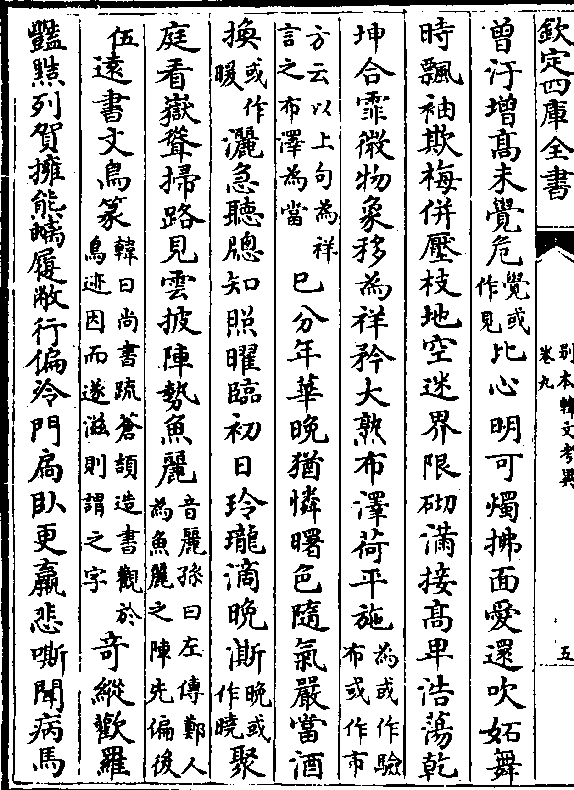 欽定四庫全書
別本韓文考異
卷九
五
曾汙增髙未覺危覺或作見比心明可燭拂面愛還吹妬舞
時飄袖欺梅併壓枝地空迷界限砌滿接髙卑浩蕩乾
坤合霏微物象移為祥矜大熟布澤荷平施為或作驗布或作市
方云以上句為祥言之布澤為當巳分年華晚猶憐曙色隨氣嚴當酒
換或作暖灑急聽牕知照曜臨初日玲瓏滴晚澌晚或作曉聚
庭看嶽聳掃路見雲披陣勢魚麗音麗孫曰左傳鄭人為魚麗之陣先偏後
伍遠書文鳥篆韓曰尚書疏蒼頡造書觀於鳥迹因而遂滋則謂之字竒縱歡羅
豔㸃列賀擁熊螭履敝行偏冷門扃臥更羸悲嘶聞病馬